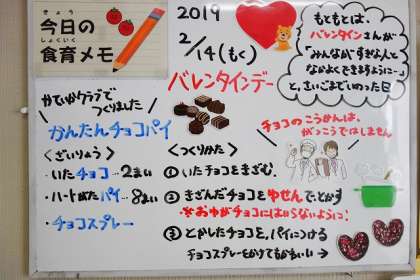 きょう
今日の
しょくいく
食育メモ
2019
2/14(もく)
バレンタインデー
もともとは、
バレンタインさんが
「みんながすきな人と
なかよくできますように…」
と、さいごまでいのった日
かていかクラブで
つくりました
かんたんチョコパイ
チョコのこうかんは、
がっこうではしません
<ざいりょう>
・いたチョコ…2まい
・ハートがたパイ…8まい
・チョコスプレー
<つくりかた>
①いたチョコをきざむ。
②きざんだチョコをゆせんで、とかす
※おゆがチョコにはいらないように!
③とかしたチョコを、パイにつける
チョコスプレーをかけてもかわいい→